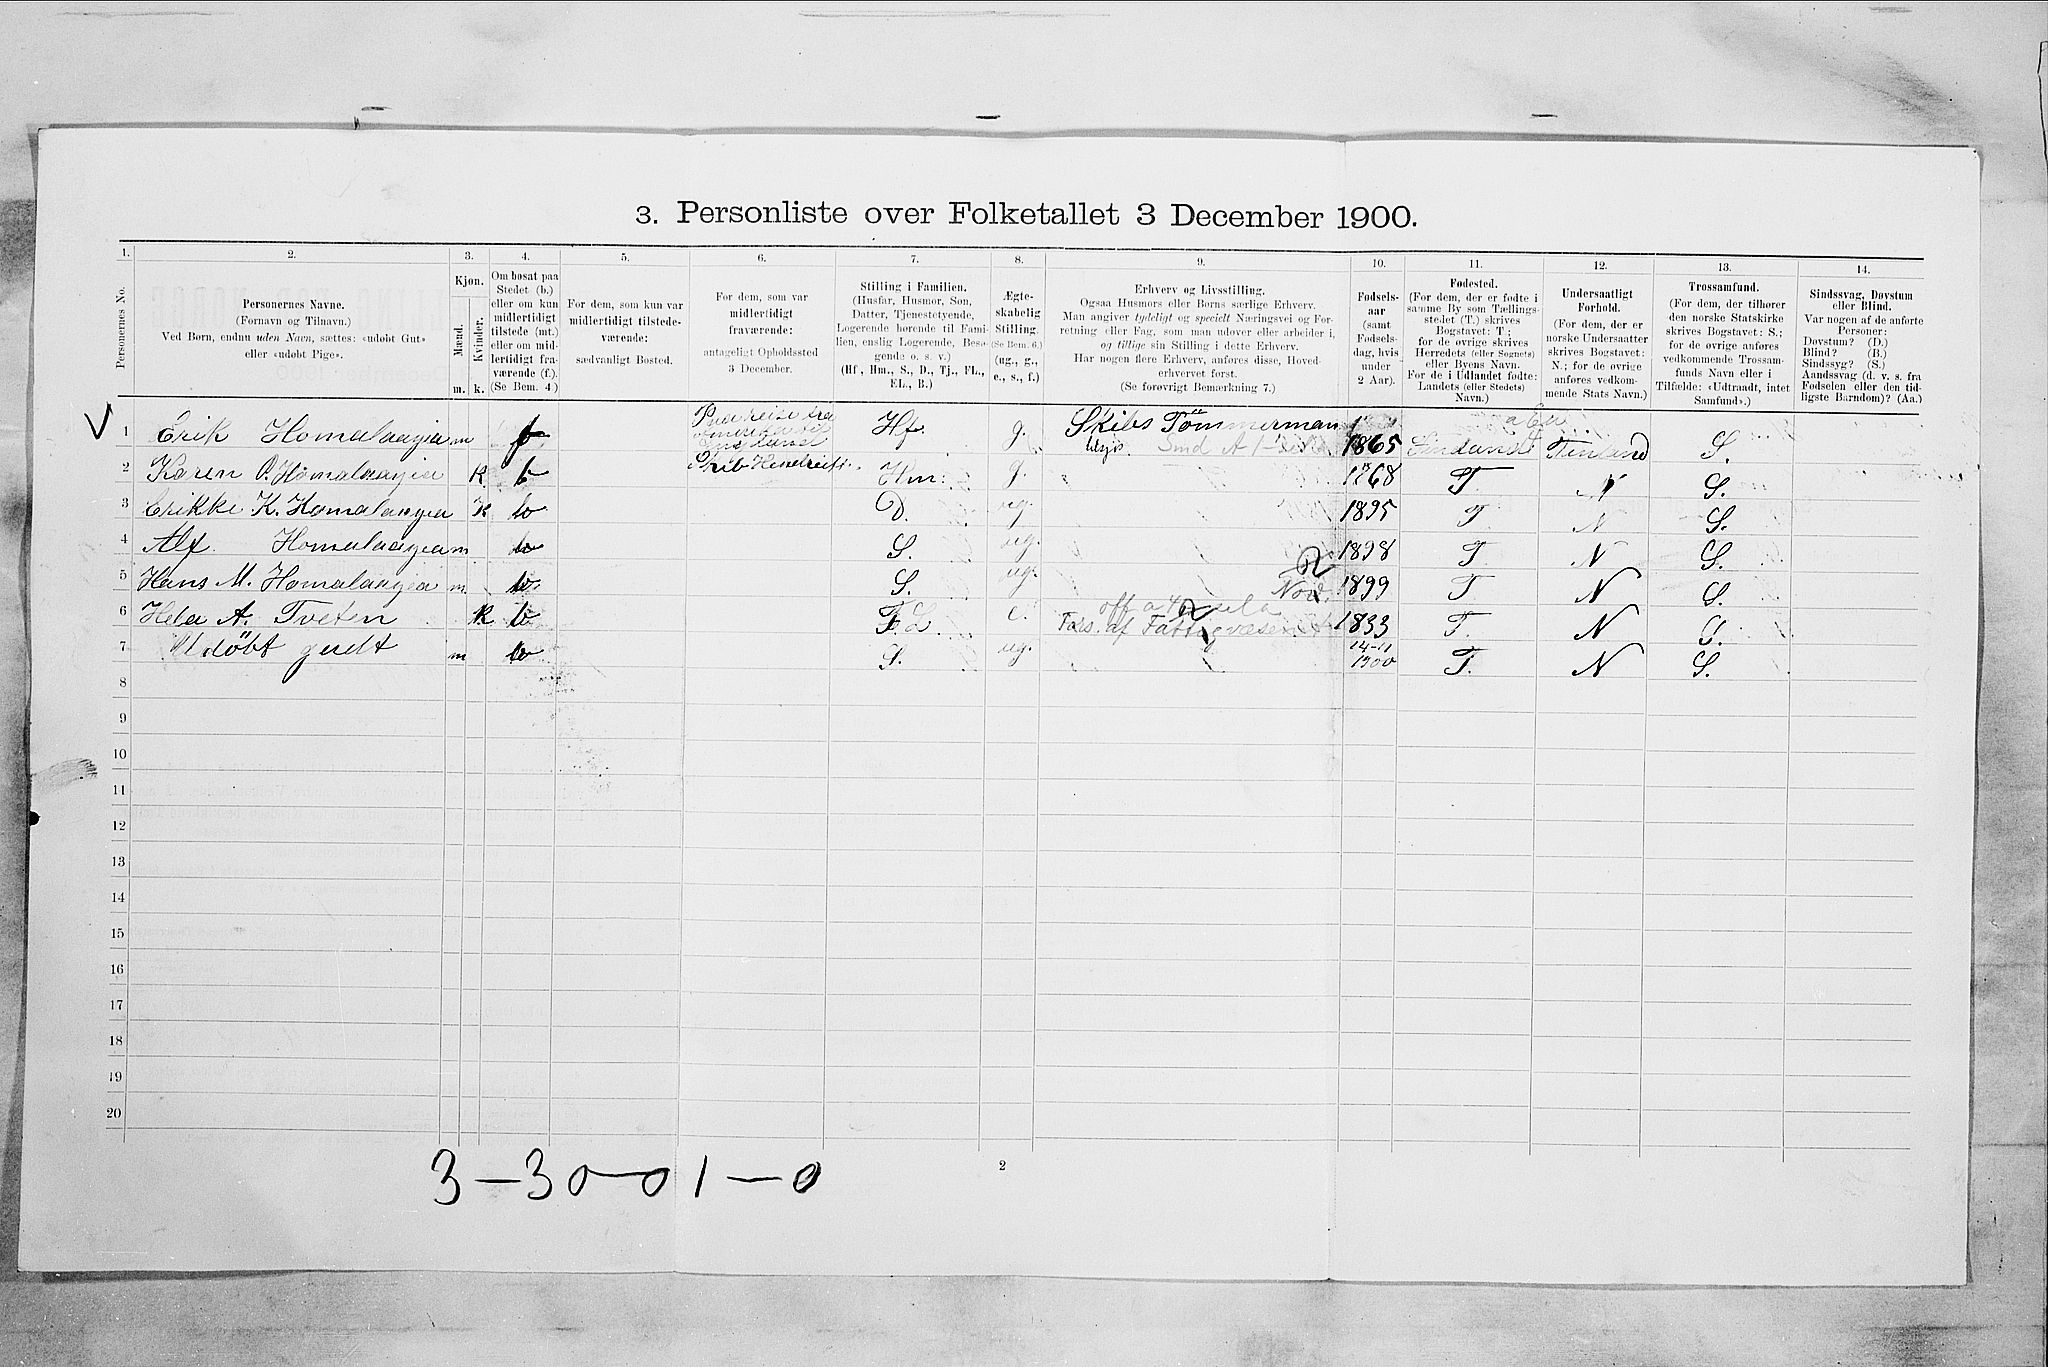 3. Personliste over Folketallet 3 December 1900.
1. 2. 3. 4. 5. 6. 7. 8. 9. 10. 11. 12. 13. 14.
Personernes No.
Personernes Navne.
(Fornavn og Tilnavn.)
Ved Børn, endnu uden Navn, sættes: «udøbt Gut»
eller «udøbt Pige».
Kjøn.
Mænd.
Kvinder.
m. k.
Om bosat paa
Stedet (b.)
eller om kun
midlertidigt
tilstede (mt.)
eller om mid-
lertidigt fra-
værende (f.).
(Se Bem. 4.)
For dem, som kun var
midlertidigt tilstede-
værende:
sædvanligt Bosted.
For dem, som var
midlertidigt
fraværende:
antageligt Opholdssted
3 December.
Stilling i Familien.
(Husfar, Husmor, Søn,
Datter, Tjenestetyende,
Logerende hørende til Fami-
lien, enslig Logerende, Besø-
gende o. s. v.)
(Hf., Hm., S., D., Tj., FL.,
EL., B.)
Ægte-
skabelig
Stilling.
(Se Bem. 6.)
(ug., g.,
e., s., f.)
Erhverv og Livsstilling.
Ogsaa Husmors eller Børns særlige Erhverv.
Man angiver tydeligt og specielt Næringsvei og For-
retning eller Fag, som man udøver eller arbeider i,
og tillige sin Stilling i dette Erhverv.
Har nogen flere Erhverv, anføres disse, Hoved-
erhvervet først.
(Se forøvrigt Bemærkning 7.)
Fødsels-
aar
(samt
Fødsels-
dag, hvis
under
2 Aar).
Fødested.
(For dem, der er fødte i
samme By som Tællings-
stedet (T.) skrives
Bogstavet: T;
for de øvrige skrives
Herredets (eller Sognets)
eller Byens Navn.
For de i Udlandet fødte:
Landets (eller Stedets)
Navn.)
Undersaatligt
Forhold.
(For dem, der er
norske Undersaatter
skrives Bogstavet:
N.; for de øvrige
anføres vedkom-
mende Stats Navn.)
Trossamfund.
(For dem, der tilhører
den norske Statskirke
skrives Bogstavet: S.;
for de øvrige anføres
vedkommende Trossam-
funds Navn eller i
Tilfælde: «Udtraadt, intet
Samfund».)
Sindssvag, Døvstum
eller Blind.
Var nogen af de anførte
Personer:
Døvstum? (D.)
Blind? (B.)
Sindssyg? (S.)
Aandssvag (d. v. s. fra
Fødselen eller den tid-
ligste Barndom)? (Aa.)
1 Erik Homalaagia m f Hf. g. Skibs Tömmerman 1865 Finland S.
2 Karen O. Homalaagia K b Hm. g. 1868 T. N S.
3 Erikke K. Homalaagia K b D. ug. 1895 T N S.
4 Alf. Homalaagia m b S. ug. 1898 T N S.
5 Hans M. Homalaagia m. b S. ug. 1899 T N S.
6 A. Tveten K b F.L. e. Fors. af Fattigvæsenet 1833 T. N S.
7 Udöbt gudt m b S. ug. 14-11 1900 T. N S.
8
9
10
11
12
13
14
15
16
17
18
19
20
3-30-01-0
2